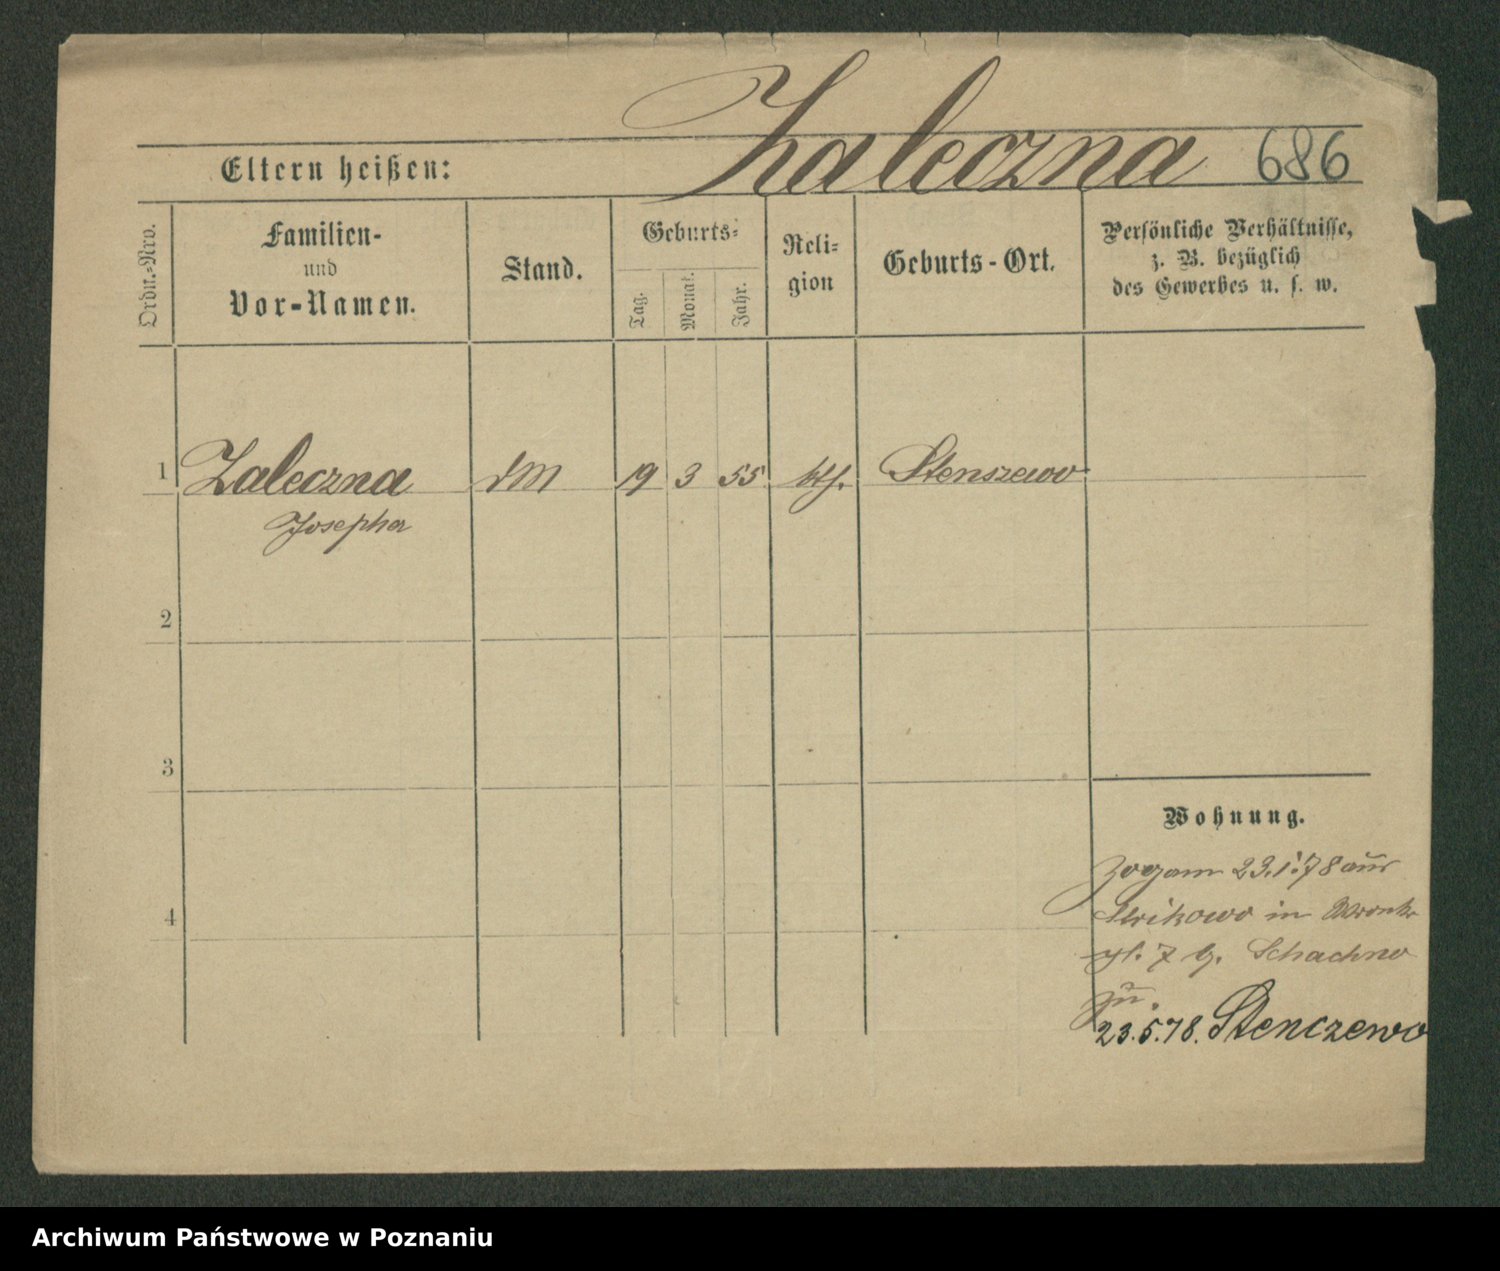 Zaleczna 686
Eltern heißen:
Ordn.-Nro.
Familien-
und
Vor-Namen.
Stand.
Geburts-
Tag.
Monat.
Jahr.
Reli-
gion
Geburts-Ort.
Persönliche Verhältnisse,
z. B. bezüglich
des Gewerbes u. s. w.
1 Zaleczna dM 19 3 55 kth. Stenszewo
Josepha
2
3
4
Wohnung.
Zog am 23.1.78 aus
Strikowo in Wronk
7 b. Schachno
zu.
23.5.78. Stenczewo
Archiwum Państwowe w Poznaniu